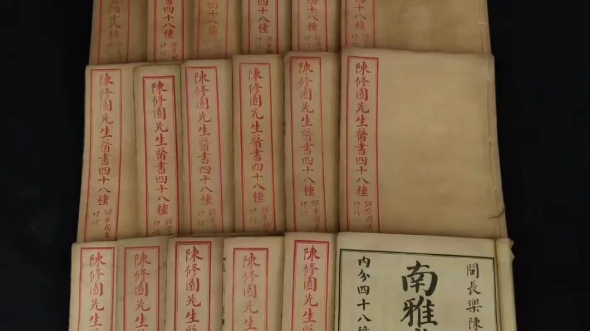 四十八種
四十八種
四十八種
四十八種
四十八種
四十八種
陳修園先生醫書四十八種
陳修園先生醫書四十八種
陳修園先生醫書四十八種
陳修園先生醫書四十八種
陳修園先生醫書四十八種
陳修園先生醫書四十八種
陳修園先生醫書
陳修園先生
陳修園先生醫書
陳修園先生醫
陳修園先生醫書
閩長樂陳
南雅
內分四十八種